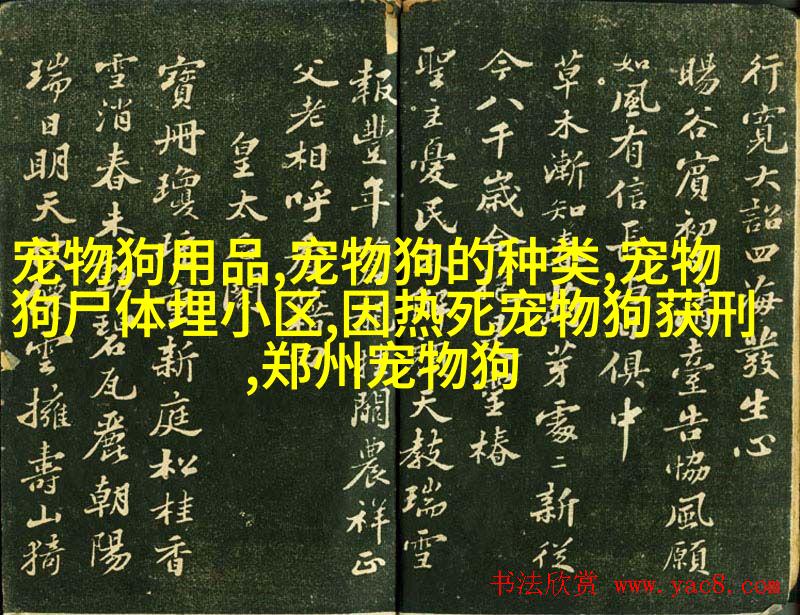 行寬大詔四海發生心
暘谷賓初臺告協風願
如風有信長俱中
草木漸知芽處〻新從
今八千歲合椿
聖主憂民天教瑞雪
報豐年關農祥正
父老相呼
皇太閤
寶冊瓊新庭松桂香
雪消春未碧瓦麗朝陽
瑞日明天雲擁壽山猗
宠物狗用品,宠物狗的种类,宠物
狗尸体埋小区,因热死宠物狗获刑
,郑州宠物狗
书法欣赏 www.yac8.com